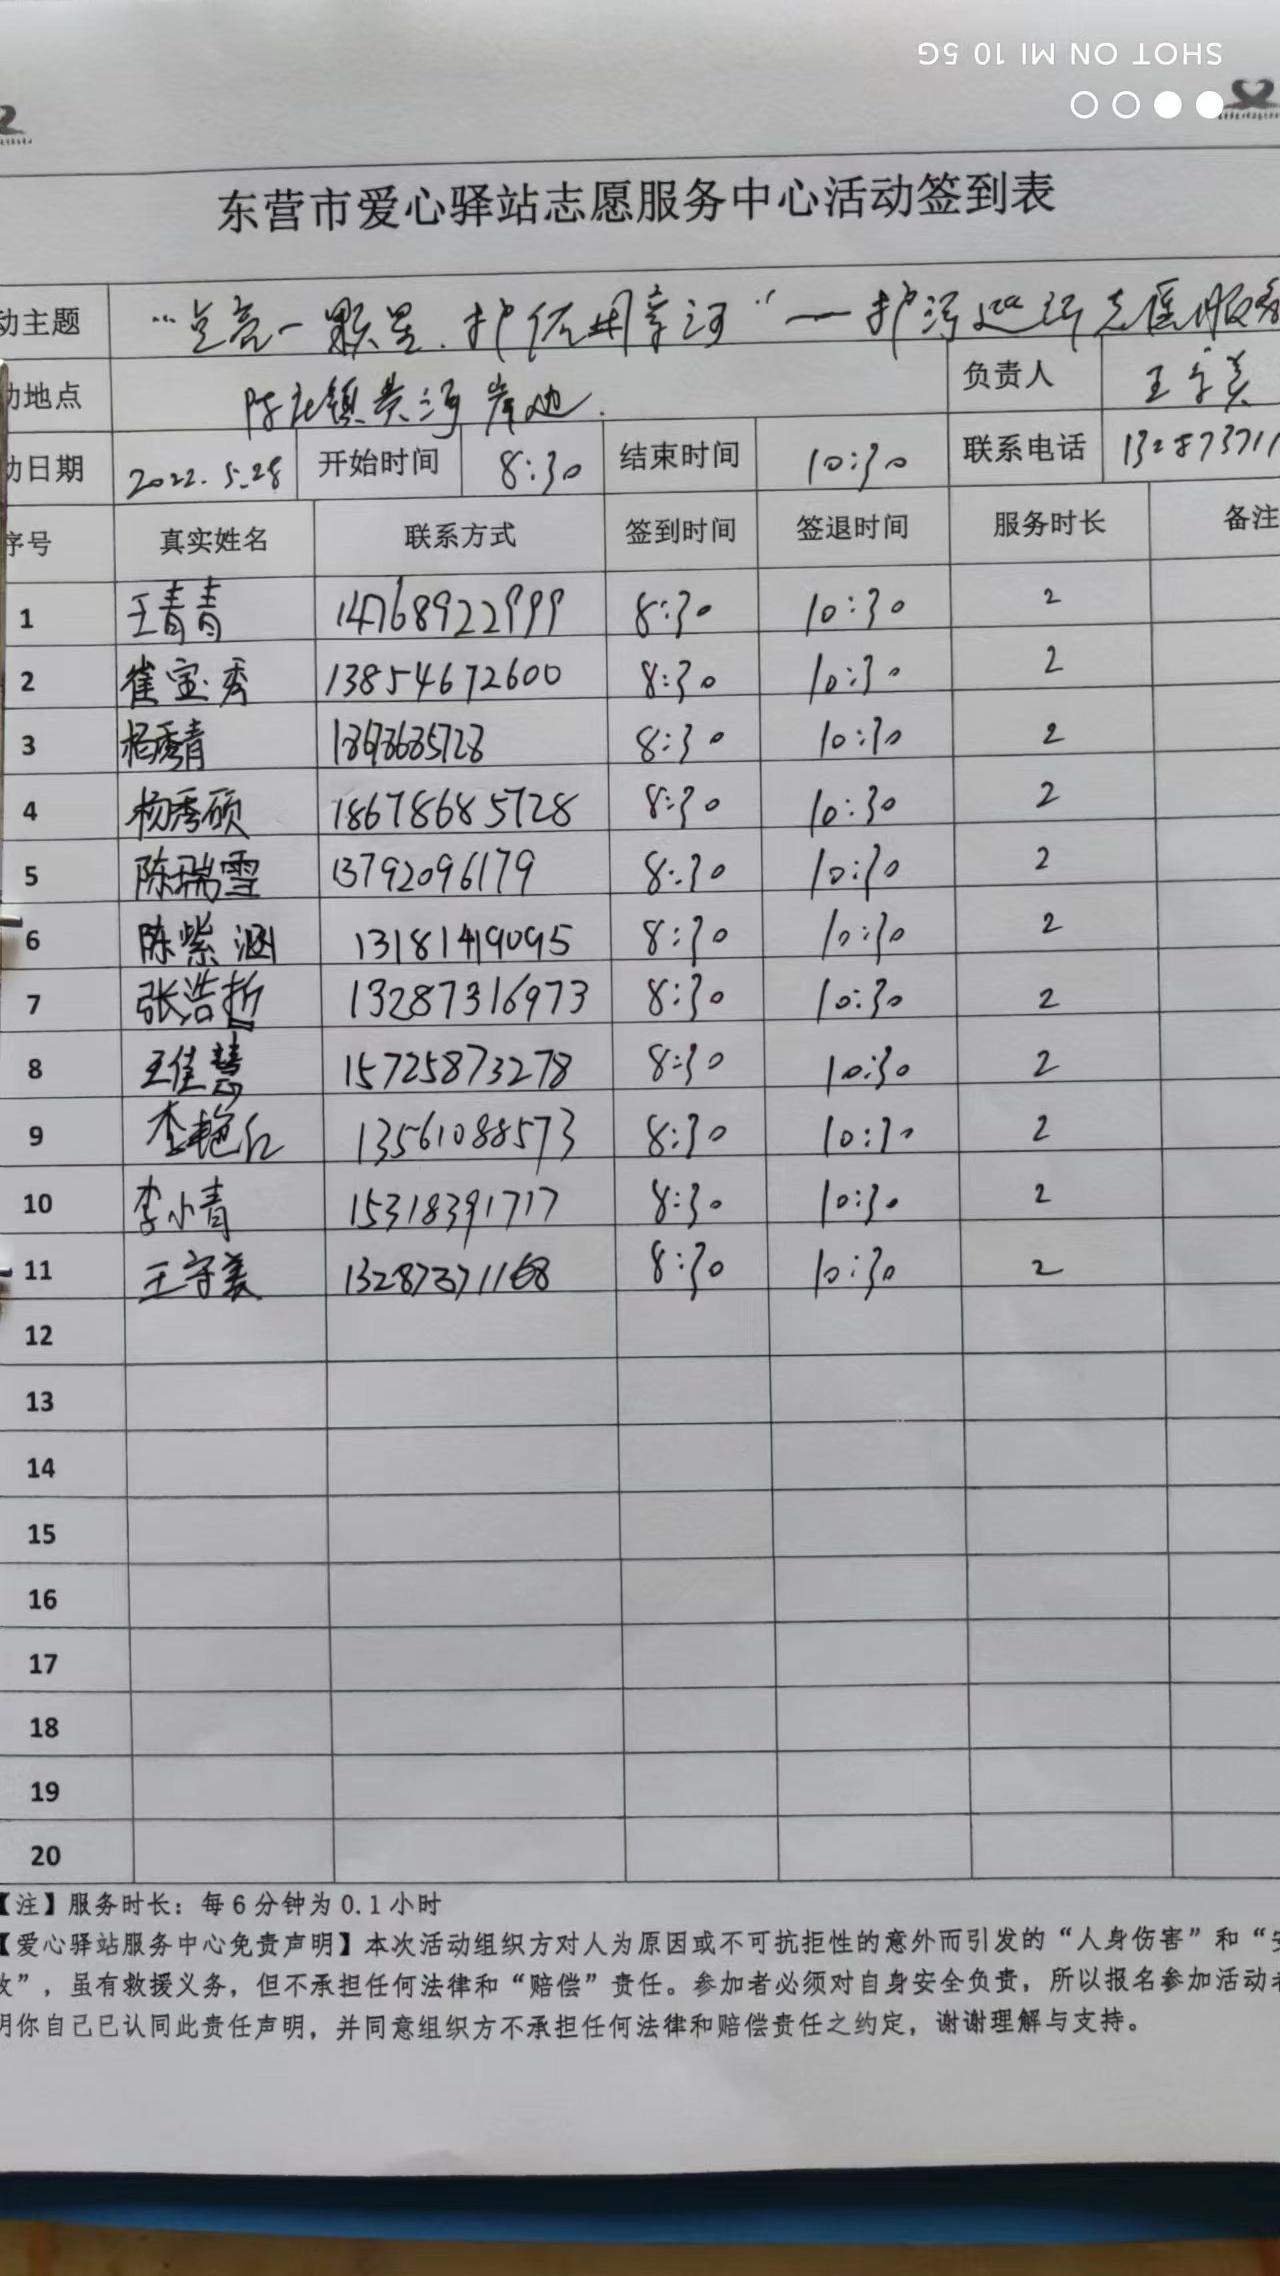 SHOT ON MI 10 5G
东营市爱心驿站志愿服务中心活动签到表
动主题 “点亮一颗星，护佑母亲河”—护河巡河志愿服务
动地点 陈庄镇黄河岸边. 负责人 王守美
动日期 2022.5.28 开始时间 8:30 结束时间 10:30 联系电话 132873711
序号 真实姓名 联系方式 签到时间 签退时间 服务时长 备注
1 王青青 14768922999 8:30 10:30 2
2 崔宝秀 13854672600 8:30 10:30 2
3 杨秀青 8:30 10:30 2
4 杨秀硕 18678685728 8:30 10:30 2
5 陈瑞雪 13792096179 8:30 10:30 2
6 陈紫涵 13181419095 8:30 10:30 2
7 张浩哲 13287316973 8:30 10:30 2
8 王佳慧 15725873278 8:30 10:30 2
9 李艳红 13561088573 8:30 10:30 2
10 李小青 15318391717 8:30 10:30 2
11 王守美 13287371168 8:30 10:30 2
12
13
14
15
16
17
18
19
20
【注】服务时长：每6分钟为0.1小时
【爱心驿站服务中心免责声明】本次活动组织方对人为原因或不可抗拒性的意外而引发的“人身伤害”和“
故”，虽有救援义务，但不承担任何法律和“赔偿”责任。参加者必须对自身安全负责，所以报名参加活动者
明你自己已认同此责任声明，并同意组织方不承担任何法律和赔偿责任之约定，谢谢理解与支持。